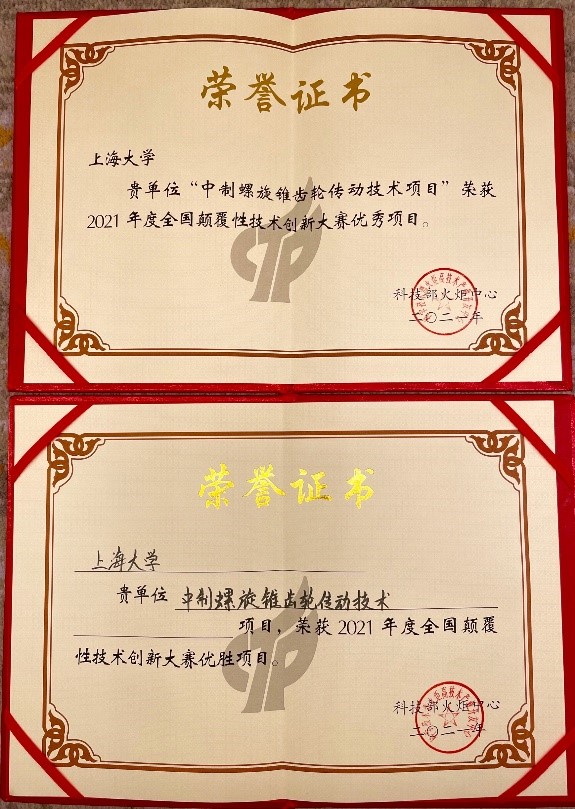 荣誉证书
上海大学
贵单位“中制螺旋锥齿轮传动技术项目”荣获
2021年度全国颠覆性技术创新大赛优秀项目。
科技部火炬中心
二〇二一年
荣誉证书
上海大学
贵单位 中制螺旋锥齿轮传动技术
项目，荣获2021年度全国颠覆
性技术创新大赛优胜项目。
科技部火炬中心
二〇二一年